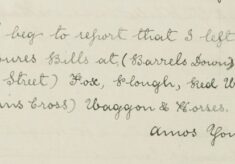 beg to report that I left
oures Bills at (Barrels Down)
Street) Fox, Plough, Red W
ins Cross) Waggon & Horses.
Amos You